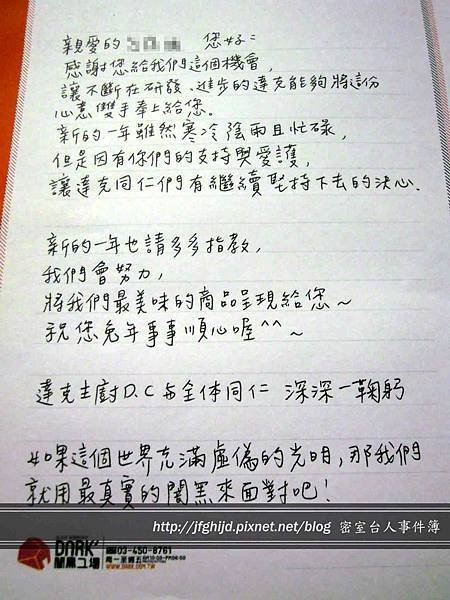 親愛的 您好:
感謝您給我們這個機會,
讓不斷在研發、進步的達克能夠將這份
心意雙手奉上給您。
新的一年雖然寒冷陰雨且忙碌,
但是因有你們的支持與愛護,
讓達克同仁們有繼續堅持下去的決心.
新的一年也請多多指教,
我們會努力,
將我們最美味的商品呈現給您~
祝您兔年事事順心喔^^~
達克主廚D.C與全体同仁 深深一鞠躬
如果這個世界充滿虛偽的光明,那我們
就用最真實的闇黑來面對吧!
http://jfghijd.pixnet.net/blog 密室台人事件簿
DARK
闇黑工場
03-450-8761
WWW.DARK.COM.TW